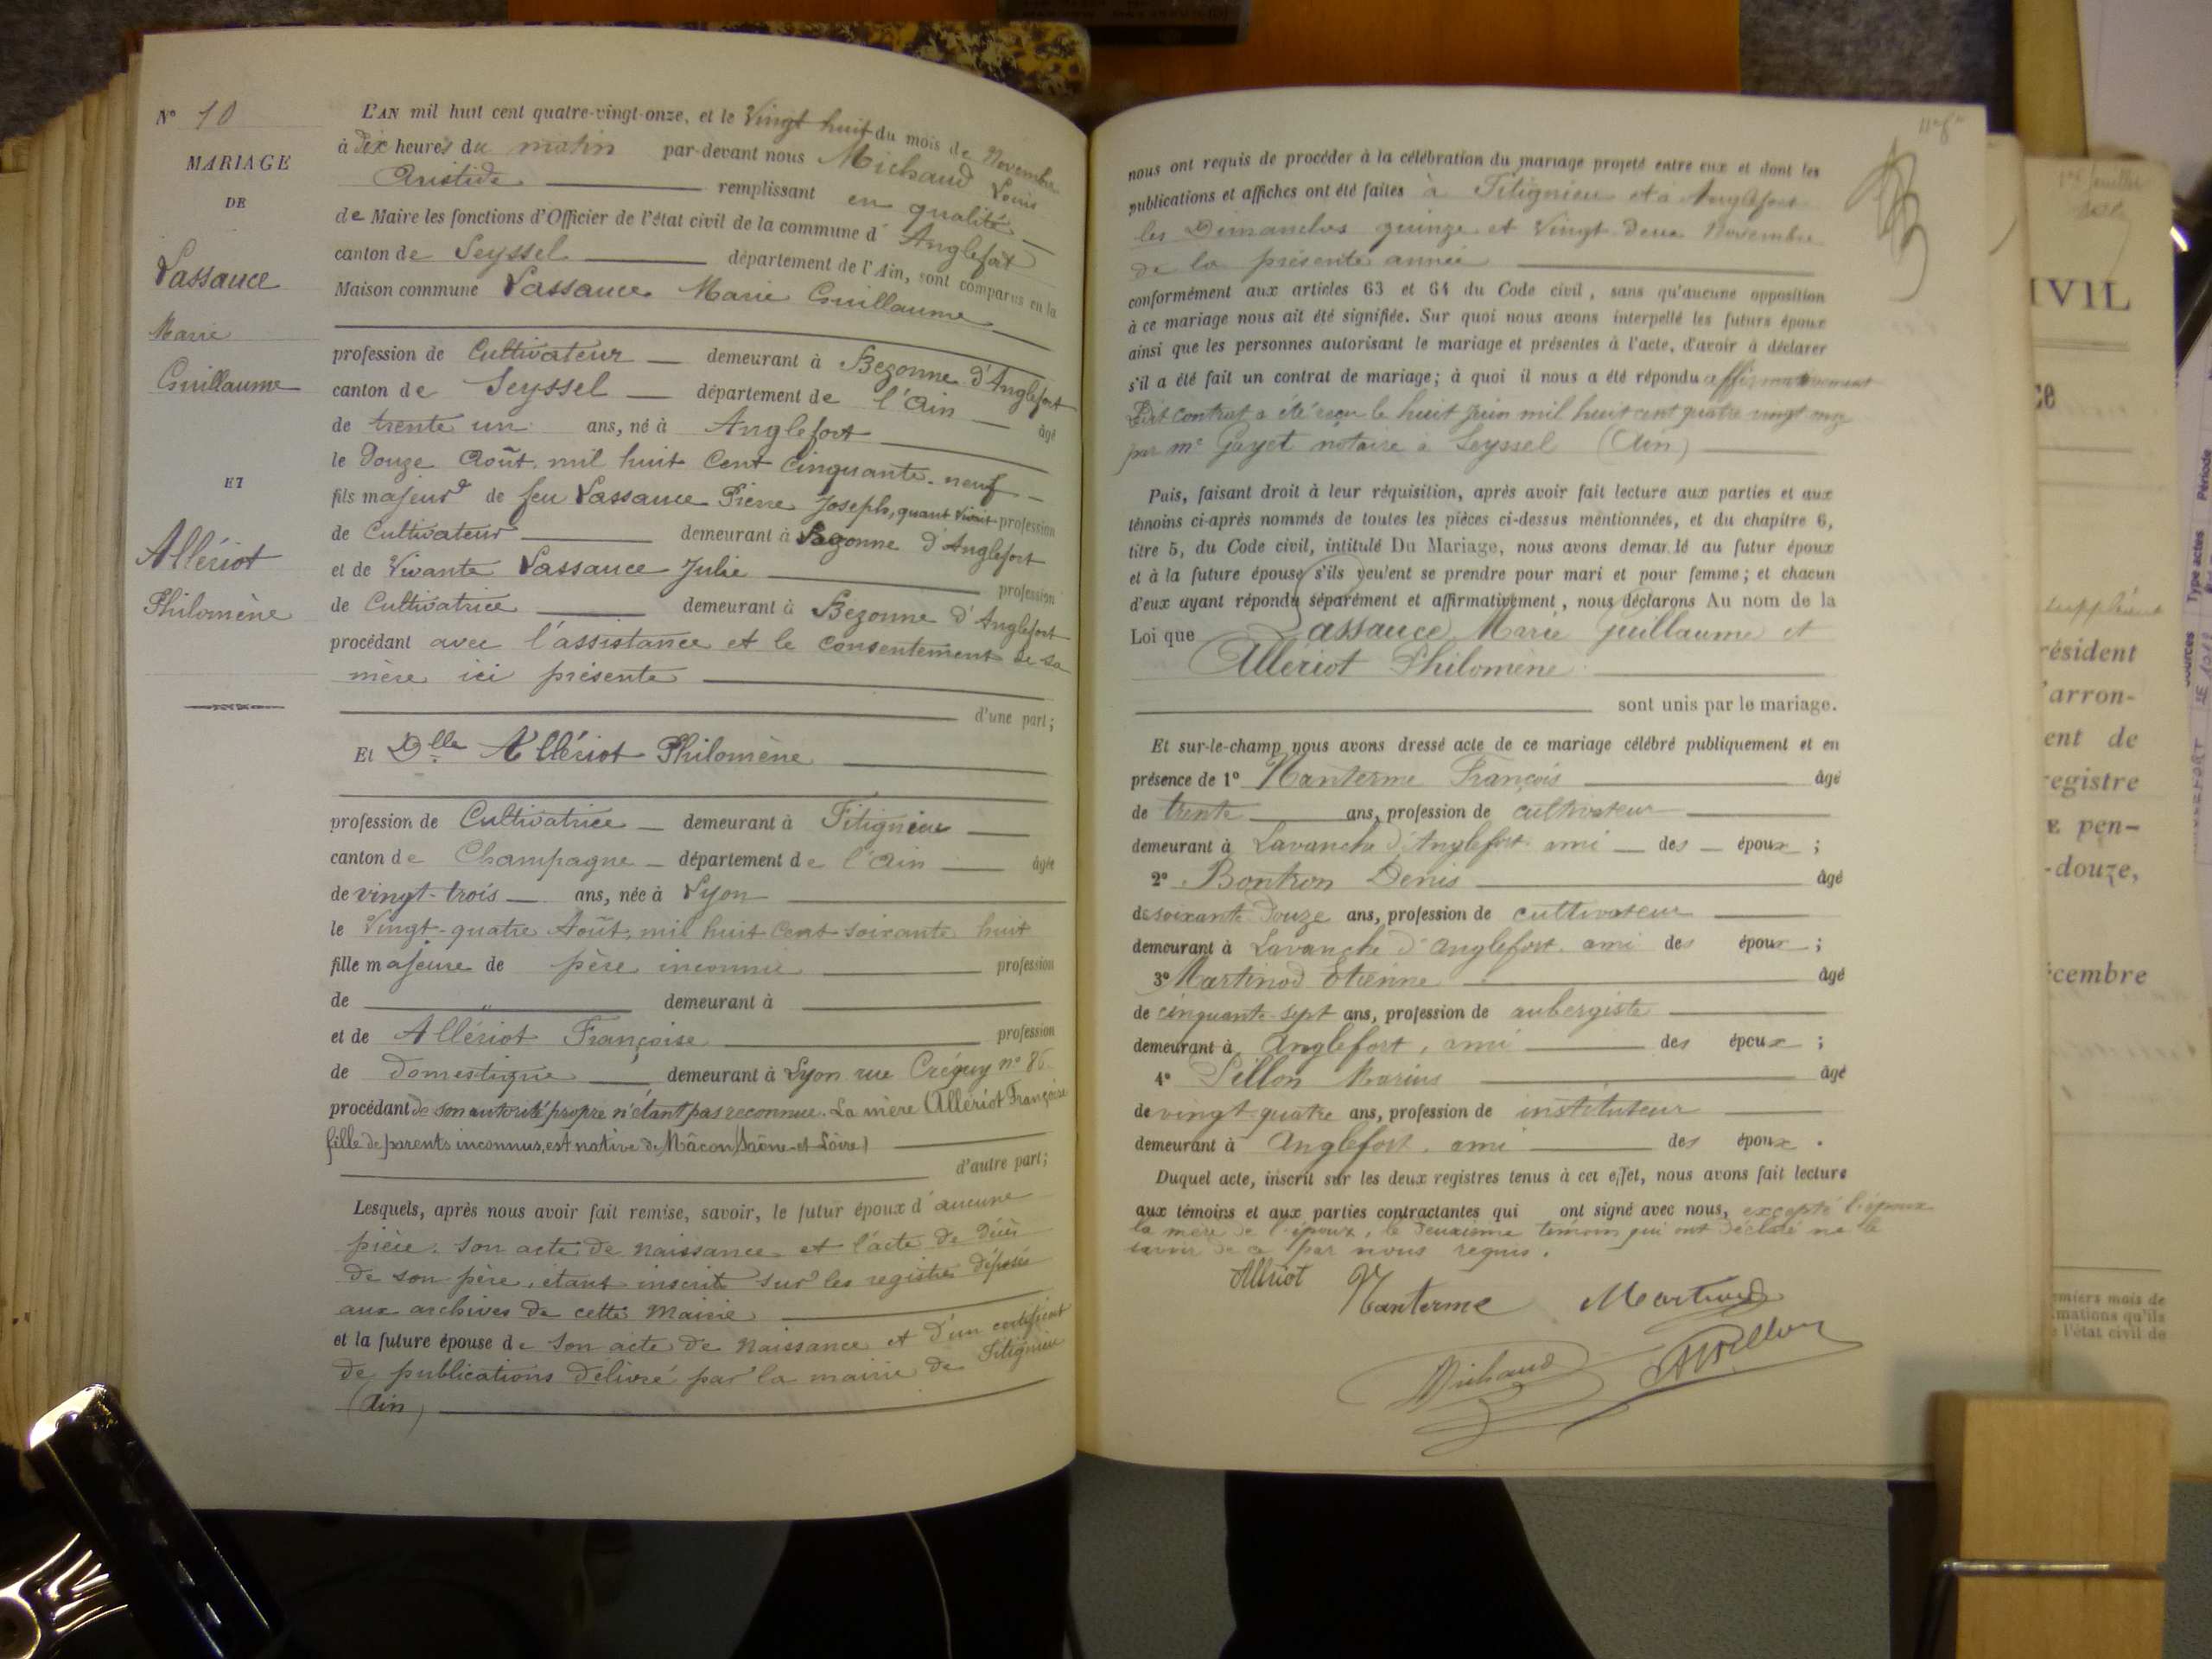 N° 10
MARIAGE
DE
Lassauce
Marie
Guillaume
ET
Allériot
Philomène
L'AN mil huit cent quatre-vingt-onze, et le Vingt huit du mois de Novembre
à Dix heures du matin par-devant nous Michaud Louis
Aristide remplissant en qualité
de Maire les fonctions d'Officier de l'état civil de la commune d' Anglefort
canton de Seyssel département de l'Ain, sont comparus en la
Maison commune Lassauce Marie Guillaume
profession de Cultivateur demeurant à Bezonne d'Anglefort
canton de Seyssel département de l'Ain âgé
de trente un ans, né à Anglefort
le Douze Août mil huit Cent Cinquante-neuf
fils majeur de feu Lassauce Pierre Joseph, quant vivait profession
de Cultivateur demeurant à Bezonne d'Anglefort
et de Vivante Lassauce Julie profession
de Cultivatrice demeurant à Bezonne d'Anglefort
procédant avec l'assistance et le consentement de sa
mère ici présente
d'une part;
Et Dlle Allériot Philomène
profession de Cultivatrice demeurant à Fitignieu
canton de Champagne département de l'Ain âgée
de vingt-trois ans, née à Lyon
le Vingt-quatre Août, mil huit Cent soixante huit
fille majeure de père inconnu profession
de " demeurant à
et de Allériot Françoise profession
de Domestique demeurant à Lyon rue Créquy n° 86
procédant de son autorité propre n'étant pas reconnue. La mère Allériot Françoise
fille de parents inconnus, est native de Mâcon (Saône-et-Loire)
d'autre part;
Lesquels, après nous avoir fait remise, savoir, le futur époux d'aucune
pièce. son acte de naissance et l'acte de décès
de son père, étant inscrits sur les registres déposés
aux archives de cette Mairie
et la future épouse de son acte de Naissance et d'un certificat
de publications délivré par la mairie de Fitignieu
(Ain)
nous ont requis de procéder à la célébration du mariage projeté entre eux et dont les
publications et affiches ont été faites à Fitignieu et à Anglefort
les Dimanches quinze et Vingt-deux Novembre
de la présente année
conformément aux articles 63 et 64 du Code civil, sans qu'aucune opposition
à ce mariage nous ait été signifiée. Sur quoi nous avons interpellé les futurs époux
ainsi que les personnes autorisant le mariage et présentes à l'acte, d'avoir à déclarer
s'il a été fait un contrat de mariage; à quoi il nous a été répondu affirmativement
Dit contrat a été reçu le huit Juin mil huit cent quatre vingt onze
par Me Gayet notaire à Seyssel (Ain)
Puis, faisant droit à leur réquisition, après avoir fait lecture aux parties et aux
témoins ci-après nommés de toutes les pièces ci-dessus mentionnées, et du chapitre 6,
titre 5, du Code civil, intitulé Du Mariage, nous avons demandé au futur époux
et à la future épouse s'ils veulent se prendre pour mari et pour femme; et chacun
d'eux ayant répondu séparément et affirmativement, nous déclarons Au nom de la
Loi que Lassauce Marie Guillaume et
Allériot Philomène
sont unis par le mariage.
Et sur-le-champ nous avons dressé acte de ce mariage célébré publiquement et en
présence de 1° Nanterme François âgé
de trente ans, profession de cultivateur
demeurant à Lavanche d'Anglefort ami des époux;
2° Bontron Denis âgé
de soixante Douze ans, profession de cultivateur
demeurant à Lavanche d'anglefort. ami des époux;
3° Martinod Etienne âgé
de cinquante-sept ans, profession de aubergiste
demeurant à Anglefort, ami des époux;
4° Pillon Marius âgé
de vingt quatre ans, profession de instituteur
demeurant à Anglefort. ami des époux.
Duquel acte, inscrit sur les deux registres tenus à cet effet, nous avons fait lecture
aux témoins et aux parties contractantes qui ont signé avec nous, excepté l'époux
la mère de l'époux, le deuxième témoin qui ont déclaré ne le
savoir de ce par nous requis.
Allriot Nanterme Martinod
Michaud Pillon
IVIL
ce
résident
'arron-
ent de
registre
pen-
-douze,
cembre
miers mois de
mations qu'ils
l'état civil de
Type actes
Période